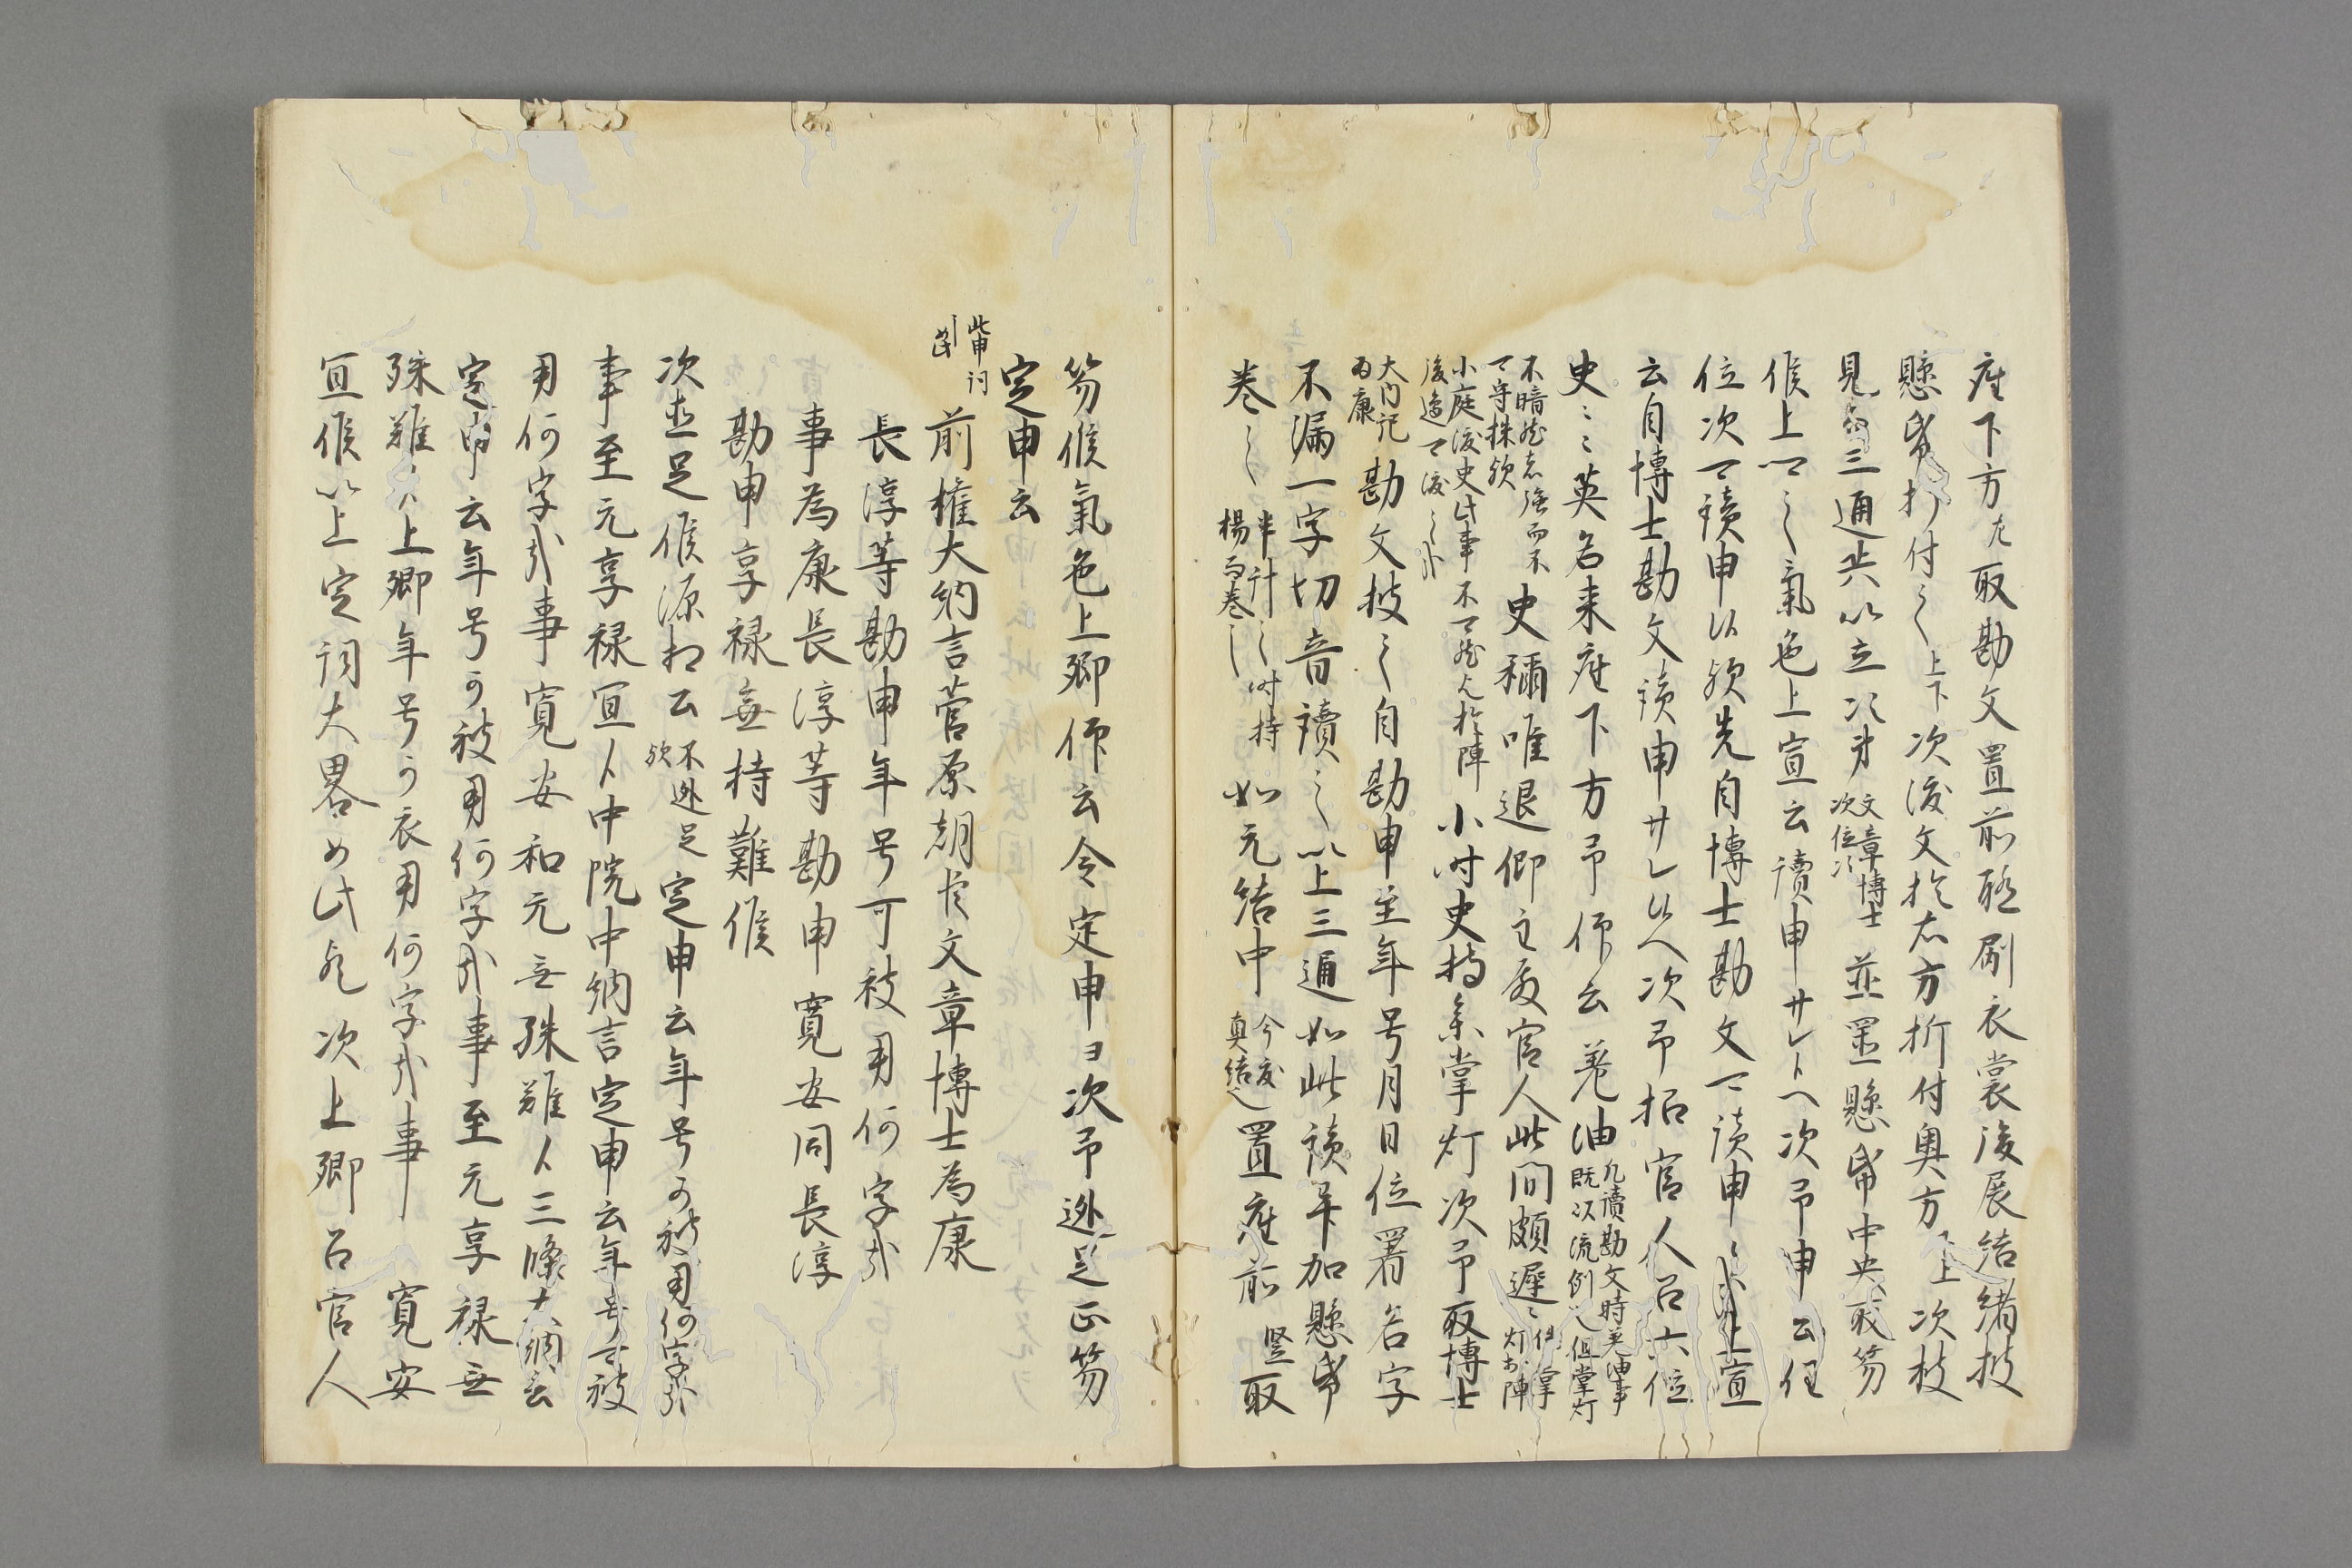 座下方左取勘文置前聊刷衣裳後展結緒披
懸帋打付之上下次復文於右方折付奥方上次披
見三通共以立次第文章博士次位次並置懸帋中央取笏
候上卿之氣色上宣云讀申サレトヘ次予申云任
位次可讀申以欤先自博士勘文可讀申上宣
云自博士勘文讀申サレヨヘ次予招官人召六位
史々英名来座下方予仰云羌油凡讀勘文時羌油事既以流例也但掌灯
不暗然志強而不可守株欤史稱唯退仰主殿官人此間頗遲々但掌灯於陣
小庭復史此事不可然歟於陣後邊可復之小時史持参掌灯次予取博士
大内記為康勘文披之自勘申至年号月日位署名字
不漏一字切音讀之以上三通如此讀畢加懸帋
巻之半計之時持楊而巻之如元結中今度真結也置座前竪取
笏候氣色上卿仰云令定申ヨ次予逃足正笏
定申云
此申詞前權大納言菅原朝臣文章博士為康
長淳等勘申年号可被用何字哉
事為康長淳等勘申寛安同長淳
勘申享禄無持難候
次並足候源相公不逃足欤定申云年号可被用何字哉
事至元享禄宜ト中院中納言定申云年号可被
用何字哉事寛安和元無殊難ト三條大納言
定申云年号可被用何字哉事至元享禄無
殊難ト上卿年号可被用何字哉事寛安
宜候以上定詞大畧如此了次上卿召官人